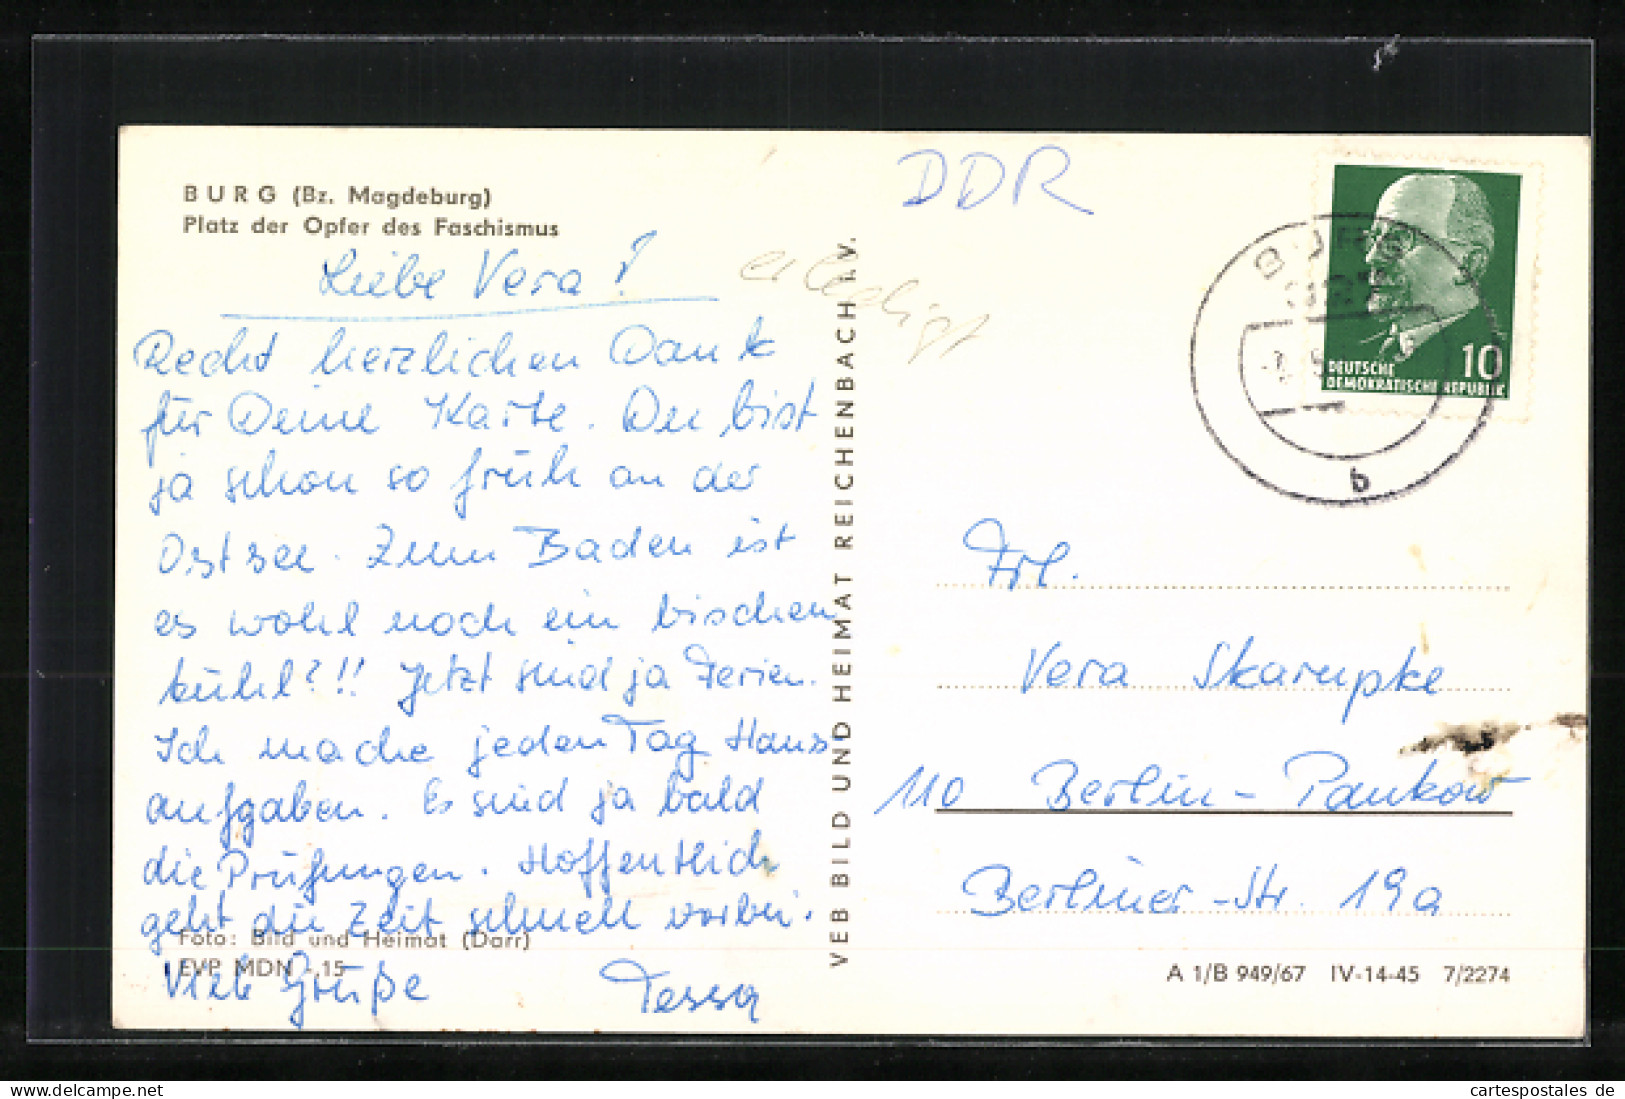 BURG (Bz. Magdeburg)
Platz der Opfer des Faschismus
Liebe Vera!
Recht herzlichen Dank
für Deine Karte. Du bist
ja schon so früh an der
Ostsee. Zum Baden ist
es wohl noch ein bischen
kühl?!! Jetzt sind ja Ferien.
Ich mache jeden Tag Haus
aufgaben. Es sind ja bald
die Prüfungen. Hoffentlich
geht die Zeit schnell vorbei.
Foto: Bild und Heimat (Darr)
EVP MDN -,15
Viele Grüße Tessa
VEB BILD UND HEIMAT REICHENBACH I. V.
DDR
erledigt
BURG
b
10
DEUTSCHE
DEMOKRATISCHE REPUBLIK
Frl.
Vera Skarupke
110 Berlin-Pankow
Berliner-Str. 19a
A 1/B 949/67 IV-14-45 7/2274
cartespostales de